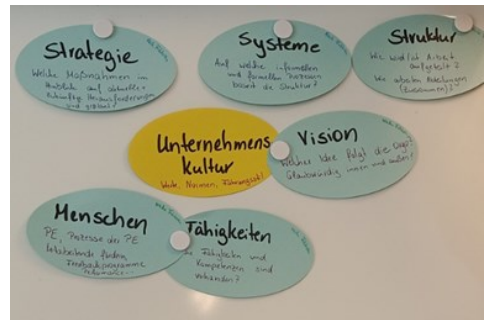 Strategie
Welche Maßnahmen im
Hinblick auf aktuelle
zukünftige Herausforderungen
sind geplant?
Systeme
Auf welche informellen
und formellen Prozessen
basiert die Struktur?
Struktur
Wie wird/ist Arbeit
aufgeteilt?
Wie arbeiten Abteilungen
(zusammen)?
Unternehmens
kultur
Werte, Normen, Führungsstil
Vision
Welcher Idee folgt die
Glaubwürdig innen und außen?
Menschen
PE, Prozesse der PE
Mitarbeitende finden
Feedbackprogramme
Fähigkeiten
Fähigkeiten und
Kompetenzen sind
vorhanden?